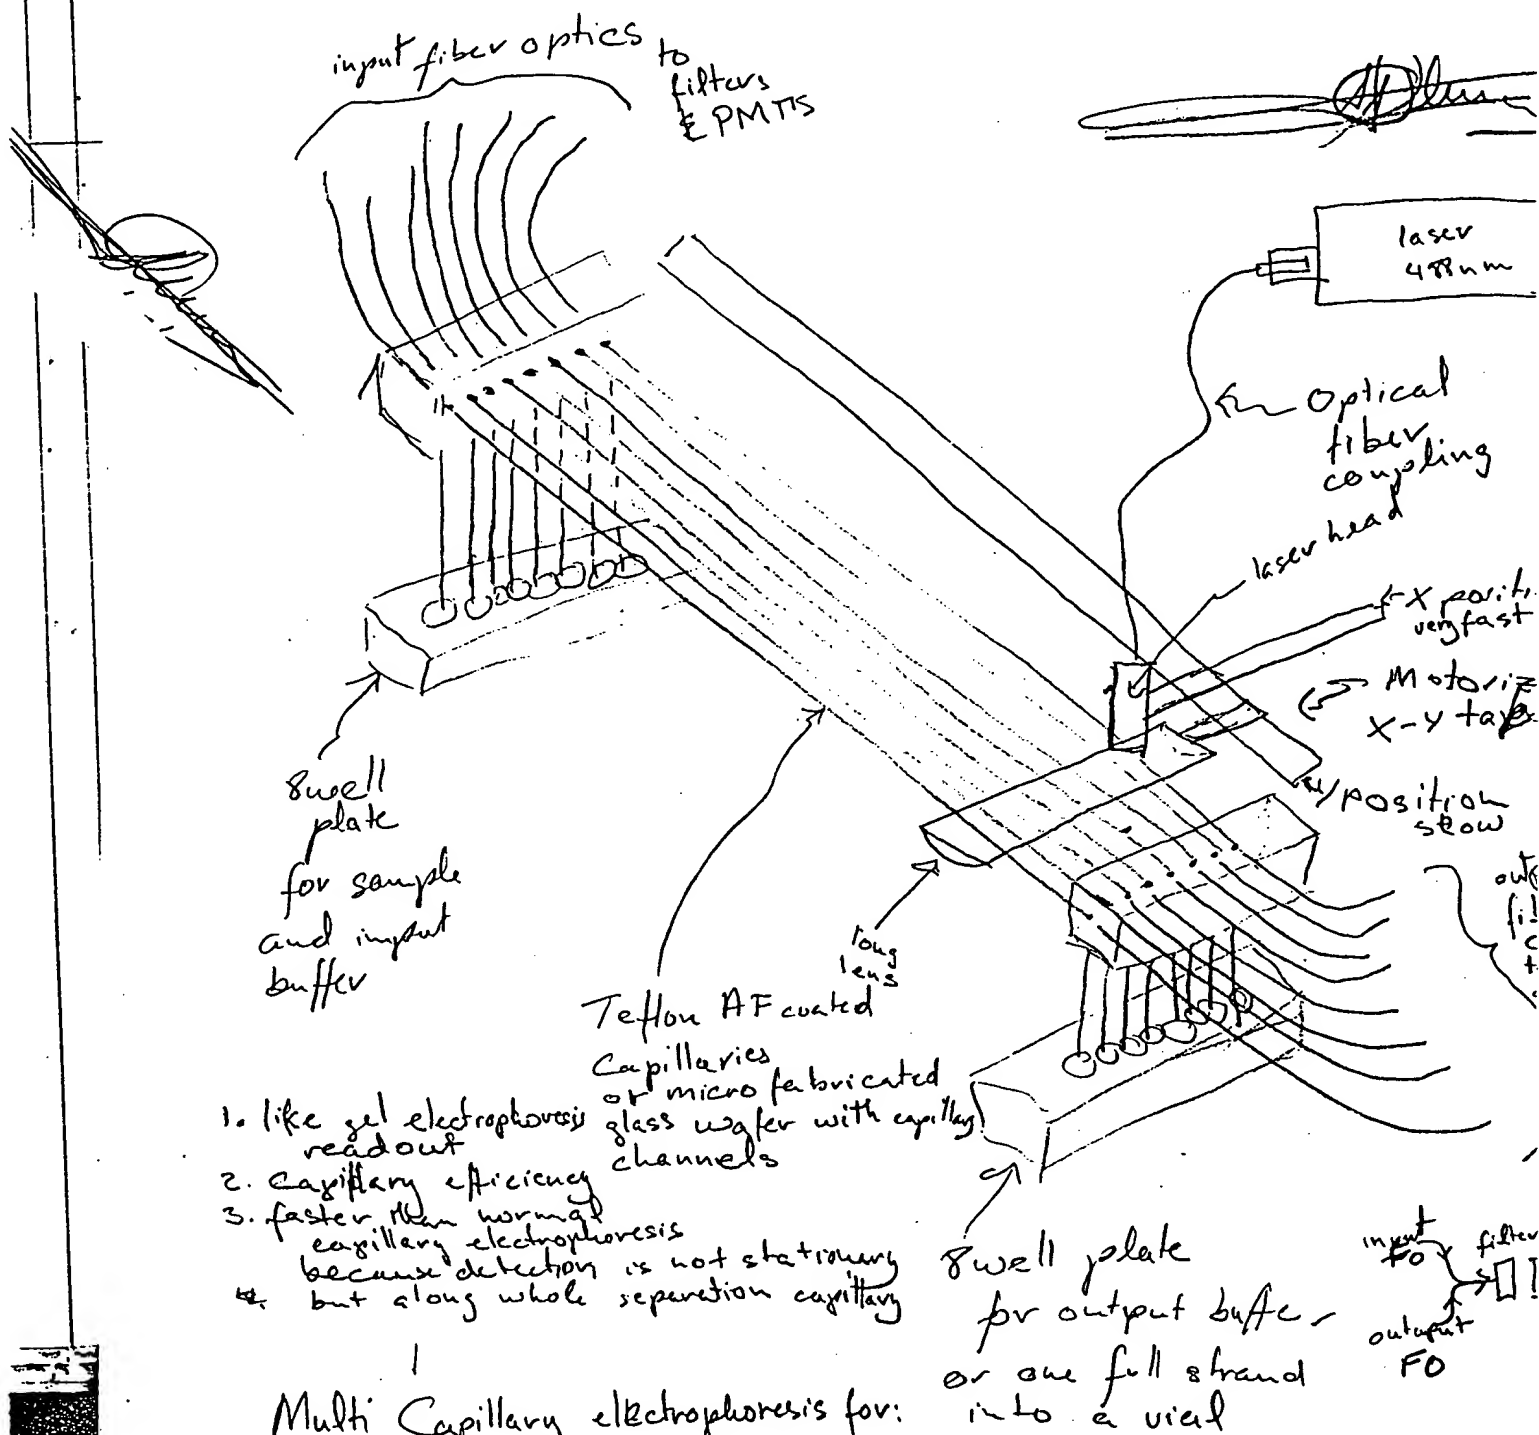 input fiber optics
to
filters
& PMT's
laser
488nm
Optical
fiber
coupling
laser head
X positi
very fast
Motoriz
X-Y
Y position
slow
8 well
plate
for sample
and input
buffer
long
lens
Teflon AF coated
Capillaries
or micro fabricated
glass wafer with capillary
channels
1. like gel electrophoresis
readout
2. Capillary efficiency
3. faster than normal
capillary electrophoresis
because detection is not stationary
4. but along whole separation capillary
8 well plate
for output buffer
or one full strand
into a vial
input
FO
filter
output
FO
Multi Capillary electrophoresis for: